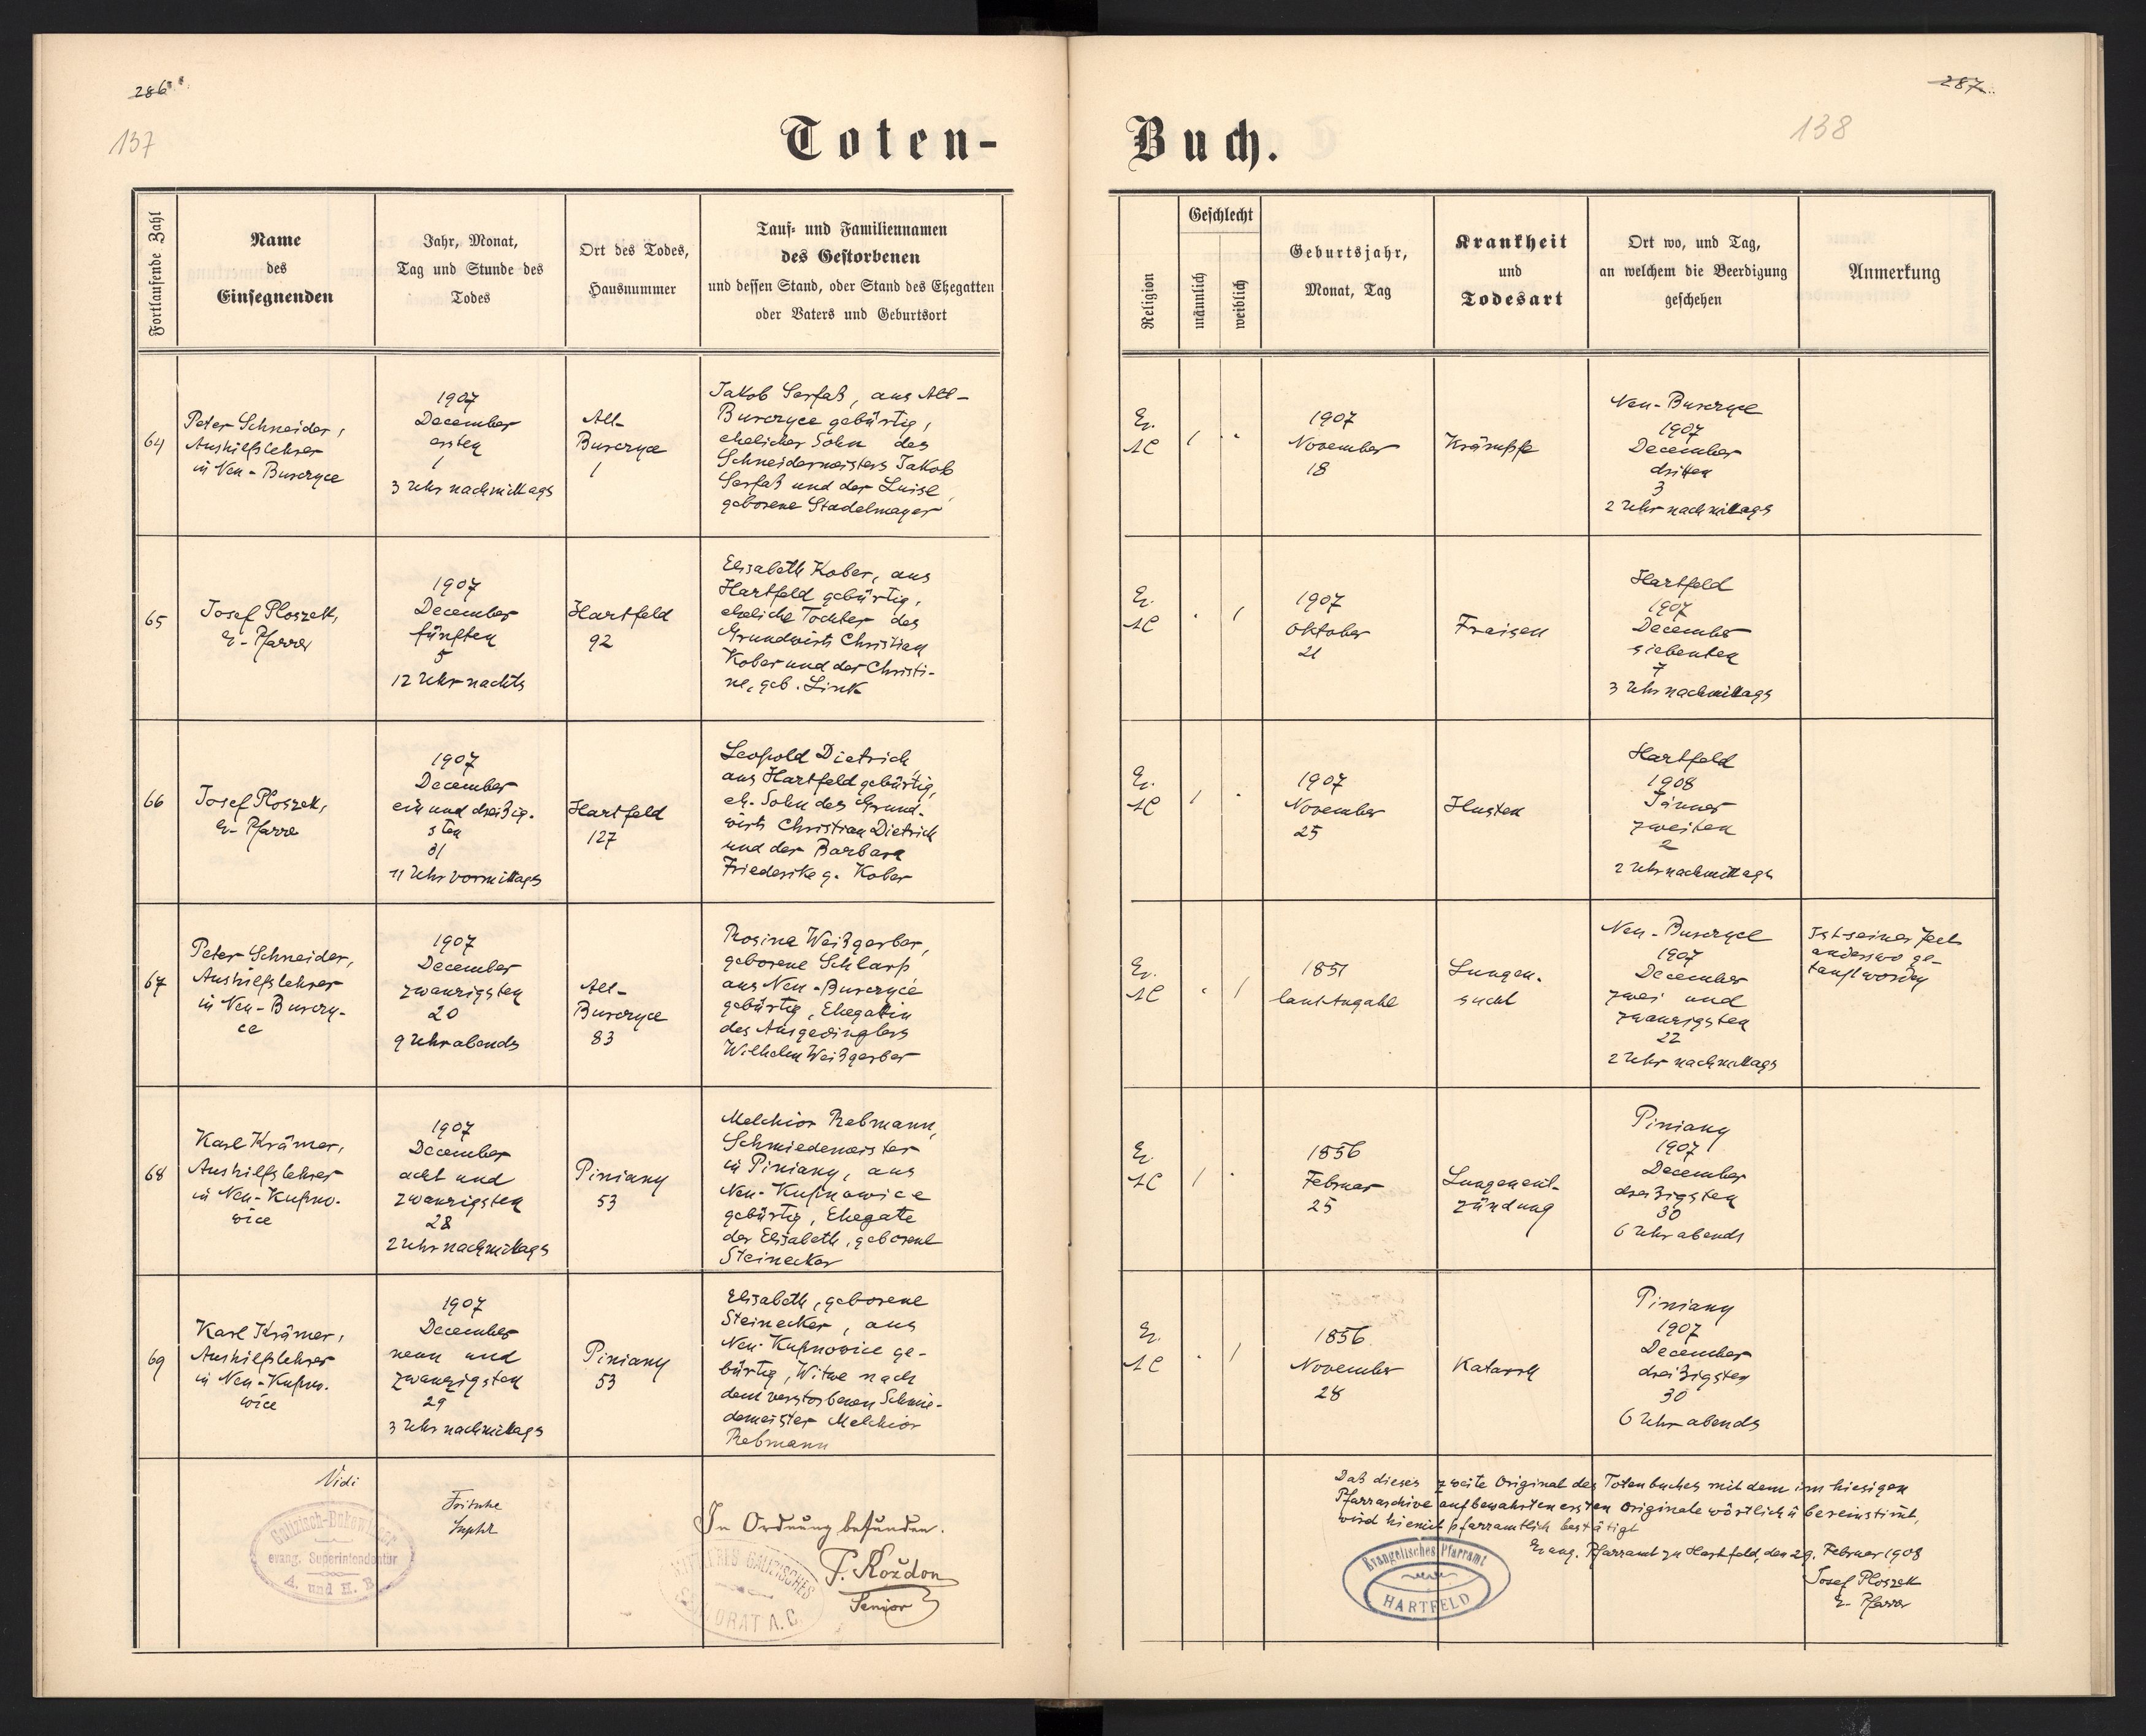 286
137
Toten-
Fortlaufende Zahl
Name
des
Einsegnenden
Jahr, Monat,
Tag und Stunde des
Todes
Ort des Todes,
Hausnummer
Tauf- und Familiennamen
des Gestorbenen
und dessen Stand, oder Stand des Ehegatten
oder Vaters und Geburtsort
64
Peter Schneider,
Aushilfslehrer
in Neu-Burczyce
1907
December
ersten
1
3 Uhr nachmittags
Alt-
Burczyce
1
Jakob Serfaß, aus Alt-
Burczyce gebürtig,
ehelicher Sohn des
Schneidermeisters Jakob
Serfaß und der Luise,
geborene Stadelmayer
65
Josef Ploszek,
Ev. Pfarrer
1907
December
fünften
5
12 Uhr nachts
Hartfeld
92
Elisabeth Kober, aus
Hartfeld gebürtig,
eheliche Tochter des
Grundwirts Christian
Kober und der Christi-
ne, geb. Link
66
Josef Ploszek,
Ev. Pfarre
1907
December
ein und dreißig-
sten
31
11 Uhr vormittags
Hartfeld
127
Leopold Dietrich,
aus Hartfeld gebürtig,
eh. Sohn des Grund-
wirts Christian Dietrich
und der Barbara
Friederike g. Kober
67
Peter Schneider,
Aushilfslehrer
in Neu-Burczy-
ce
1907
December
zwanzigsten
20
9 Uhr abends
Alt-
Burczyce
83
Rosina Weißgerber,
geborene Schlarp,
aus Neu-Burczyce
gebürtig, Ehegattin
des Ausgedinglers
Wilhelm Weißgerber
68
Karl Krämer,
Aushilfslehrer
in Neu-Kupno-
wice
1907
December
acht und
zwanzigsten
28
2 Uhr nachmittags
Piniany
53
Melchior Rebmann,
Schmiedemeister
in Piniany, aus
Neu-Kupnowice
gebürtig, Ehegatte
der Elisabeth, geborene
Steinecker
69
Karl Krämer,
Aushilfslehrer
in Neu-Kupno-
wice
1907
December
neun und
zwanzigsten
29
3 Uhr nachmittags
Piniany
53
Elisabeth, geborene
Steinecker, aus
Neu-Kupnowice ge-
bürtig, Witwe nach
dem verstorbenen Schmie-
demeister Melchior
Rebmann
Vidi
Fritsche
Suptdt
Galizisch-Bukowinaer
evang. Superintendentur
A. und H. B.
In Ordnung befunden.
MITTLERES GALIZISCHES
SENIORAT A. C.
F. Rozdon
Senior
287
138
Buch.
Religion
Geschlecht
männlich
weiblich
Geburtsjahr,
Monat, Tag
Krankheit
und
Todesart
Ort wo, und Tag,
an welchem die Beerdigung
geschehen
Anmerkung
Ev.
AC
1 .
1907
November
18
Krämpfe
Neu-Burczyce
1907
December
dritten
3
2 Uhr nachmittags
Ev.
AC
. 1
1907
Oktober
21
Fraisen
Hartfeld
1907
December
siebenten
7
3 Uhr nachmittags
Ev.
AC
1 .
1907
November
25
Husten
Hartfeld
1908
Jänner
zweiten
2
2 Uhr nachmittags
Ev.
AC
. 1
1851
laut Angabe
Lungen-
sucht
Neu-Burczyce
1907
December
zwei und
zwanzigsten
22
2 Uhr nachmittags
Ist seiner Zeit
anderswo ge-
tauft worden
Ev.
AC
1 .
1856
Februar
25
Lungenent-
zündung
Piniany
1907
December
dreißigsten
30
6 Uhr abends
Ev.
AC
. 1
1856
November
28
Katarrh
Piniany
1907
December
dreißigsten
30
6 Uhr abends
Daß dieses zweite Original des Totenbuches mit dem im hiesigen
Pfarrarchive aufbewahrten ersten Originale wörtlich übereinstimt,
wird hiemit pfarramtlich bestätigt
Evang. Pfarramt zu Hartfeld, den 29. Februar 1908
Evangelisches Pfarramt
HARTFELD
Josef Ploszek
Ev. Pfarrer